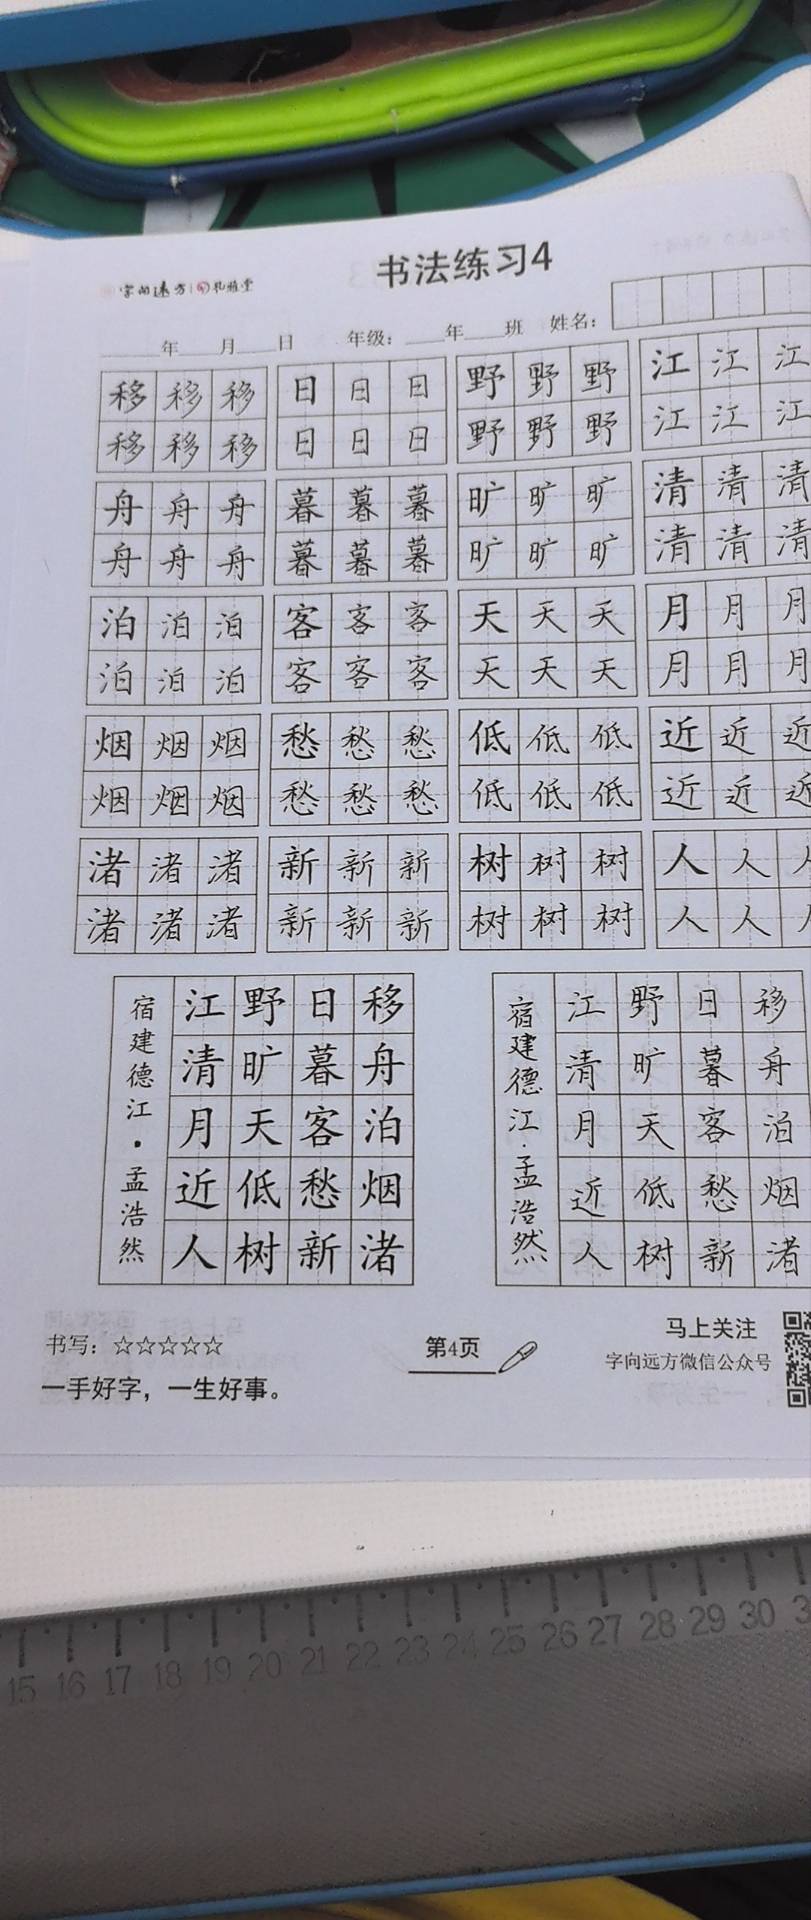 字向远方 孔雅堂
书法练习4
年 月 日 年级： 年 班 姓名：
移移移 日日日 野野野 江江江
移移移 日日日 野野野 江江江
舟舟舟 暮暮暮 旷旷旷 清清清
舟舟舟 暮暮暮 旷旷旷 清清清
泊泊泊 客客客 天天天 月月月
泊泊泊 客客客 天天天 月月月
烟烟烟 愁愁愁 低低低 近近近
烟烟烟 愁愁愁 低低低 近近近
渚渚渚 新新新 树树树 人人人
渚渚渚 新新新 树树树 人人人
移舟泊烟渚
日暮客愁新
野旷天低树
江清月近人
宿建德江·孟浩然
移舟泊烟渚
日暮客愁新
野旷天低树
江清月近人
宿建德江·孟浩然
书写：☆☆☆☆☆
一手好字，一生好事。
第4页
马上关注
字向远方微信公众号
15 16 17 18 19 20 21 22 23 24 25 26 27 28 29 30